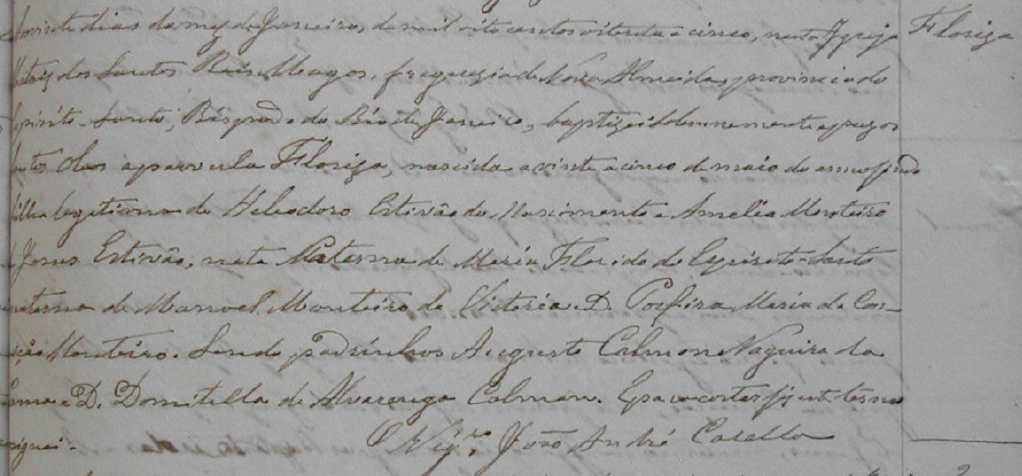 dias do mez de Janeiro, de mil oito centos oitenta e cinco, nesta Igreja Floriza
Matriz dos Santos Reis Magos, freguezia de Nova Almeida, provincia do
Espirito-Santo, Bispado do Rio de Janeiro, baptizei solemnemente e puz os
Santos Oleos a parvula Floriza, nascida a vinte e cinco de maio do anno findo
filha legitima de Heliodoro Estevão do Nascimento e Amelia Monteiro
de Jesus Estevão, neta Paterna de Maria Florido do Espirito-Santo
materna de Manoel Monteiro da Victoria D. Porfira Maria da Con-
ceição Monteiro. Sendo padrinhos Augusto Calmon Nogueira da
Gama e D. Domitilla de Alvarenga Calmon. E para constar fiz este termo
assignei.
O Vigr.º João André Casella